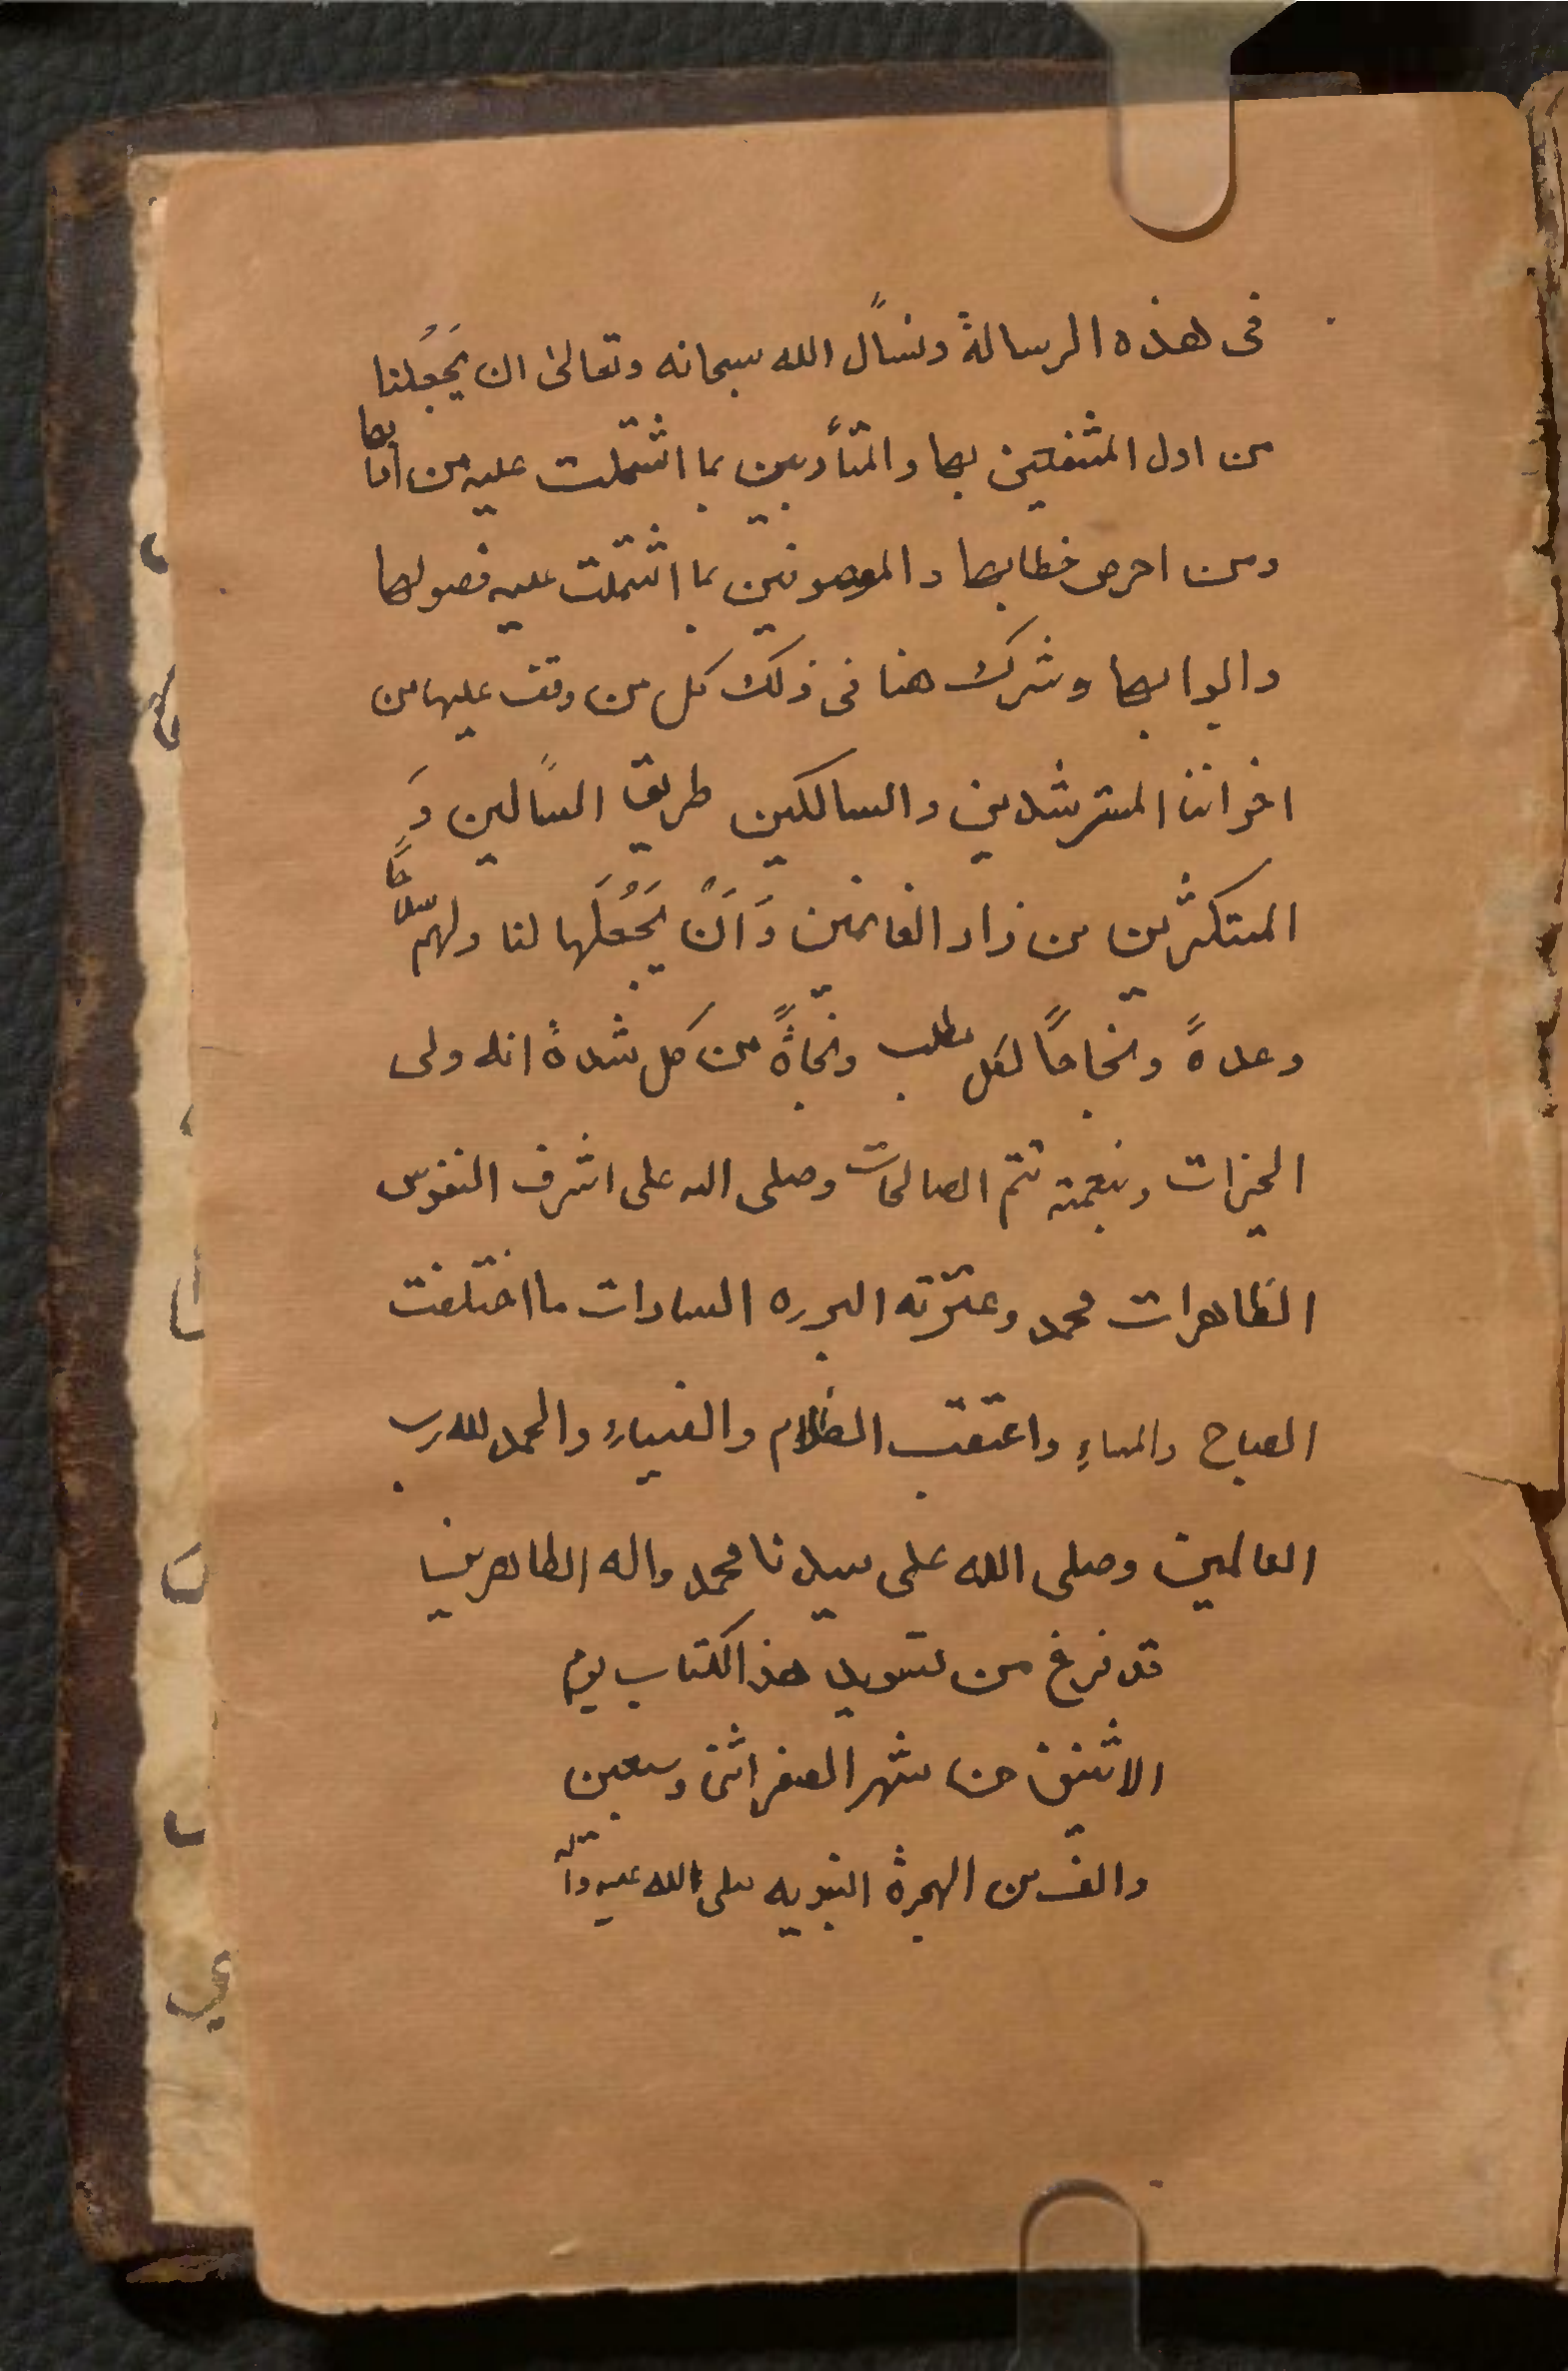 فى هذه الرسالة ونسأل الله سبحانه وتعالى ان يَجْعَلنا
من اول المنتفعين بها والمتأدبين بما اشتملت عليه من ادابها
ومن احرص خطابها والموصوفين بما اشتملت عليه فصولها
وابوابها وشرك هنا فى ذلك كل من وقف عليها من
اخواننا المسترشدين والسالكين طريق السالمين وَ
المستكثرين من زاد الغانمين وَاَنْ يَجْعَلَها لنا ولهم سلاحًا
وعدةً ونجاحًا لكل مطلب ونجاةً من كل شدة انه ولى
الخيرات وبنعمته تتم الصالحات وصلى الله على اشرف النفوس
الطاهرات محمد وعترته البرره السادات ما اختلفت
الصباح والمساءِ واعتقب الظلام والضياءِ والحمد لله رب
العالمين وصلى الله على سيدنا محمد واله الطاهرين
قد فرغ من تسويد هذا الكتاب يوم
الاثنين من شهر الصفر اثنى وسبعين
والف من الهجرة النبويه صلى الله عليه وآله